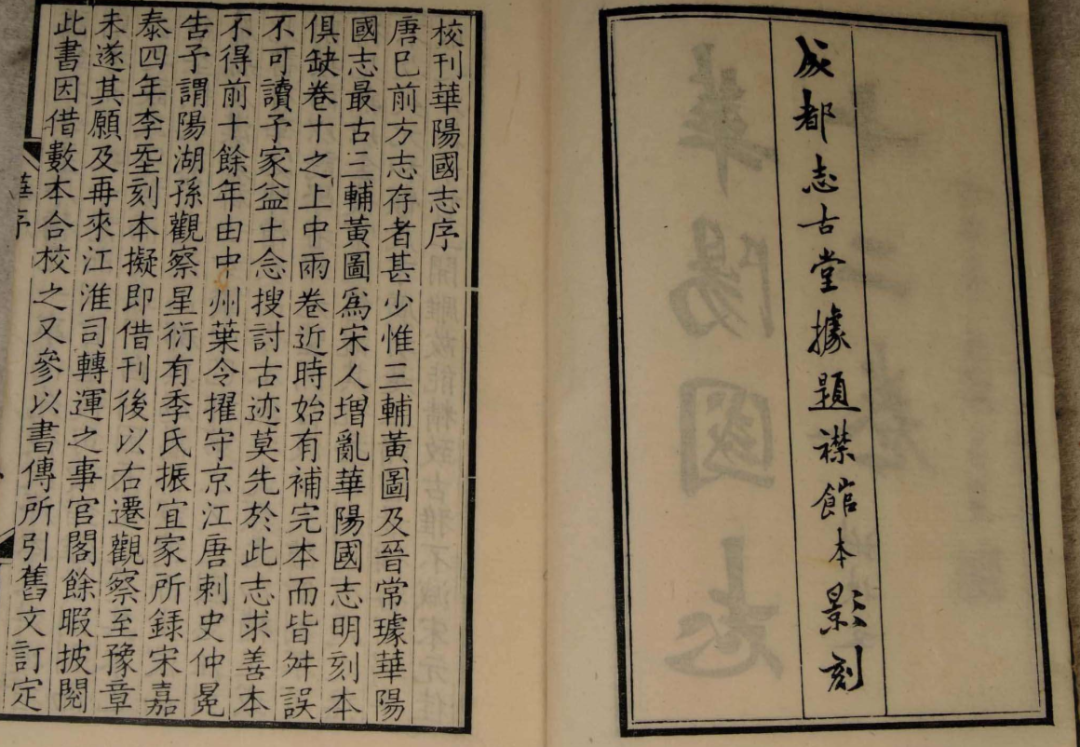 成都志古堂據題襟館本影刻
校刊華陽國志序
唐已前方志存者甚少惟三輔黃圖及晉常璩華陽
國志最古三輔黃圖爲宋人增亂華陽國志明刻本
俱缺卷十之上中兩卷近時始有補完本而皆舛誤
不可讀予家益土念搜討古迹莫先於此志求善本
不得前十餘年由中州葉令擢守京江唐刺史仲冕
告予謂陽湖孫觀察星衍有季氏振宜家所錄宋嘉
泰四年李𡐛刻本擬即借刊後以右遷觀察至豫章
未遂其願及再來江淮司轉運之事官閣餘暇披閱
此書因借數本合校之又參以書傳所引舊文訂定
華序